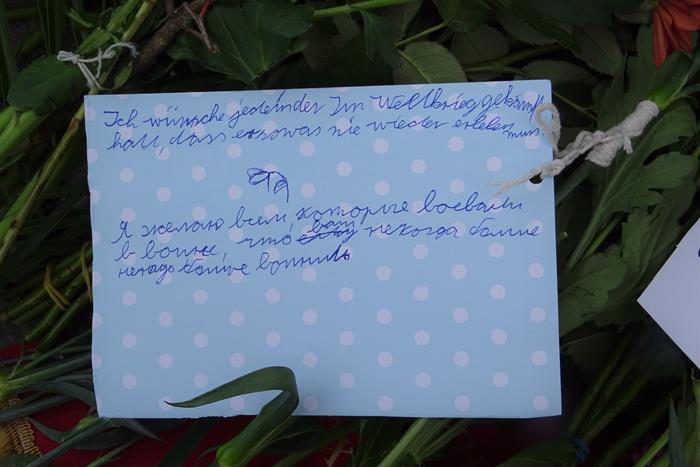 Ich wünsche jedem der Im Weltkrieg gekämpft
hat, dass er sowas nie wieder erleben muss.
Я желаю всем которые воевали
в войне, что вам некогда болше
ненадо